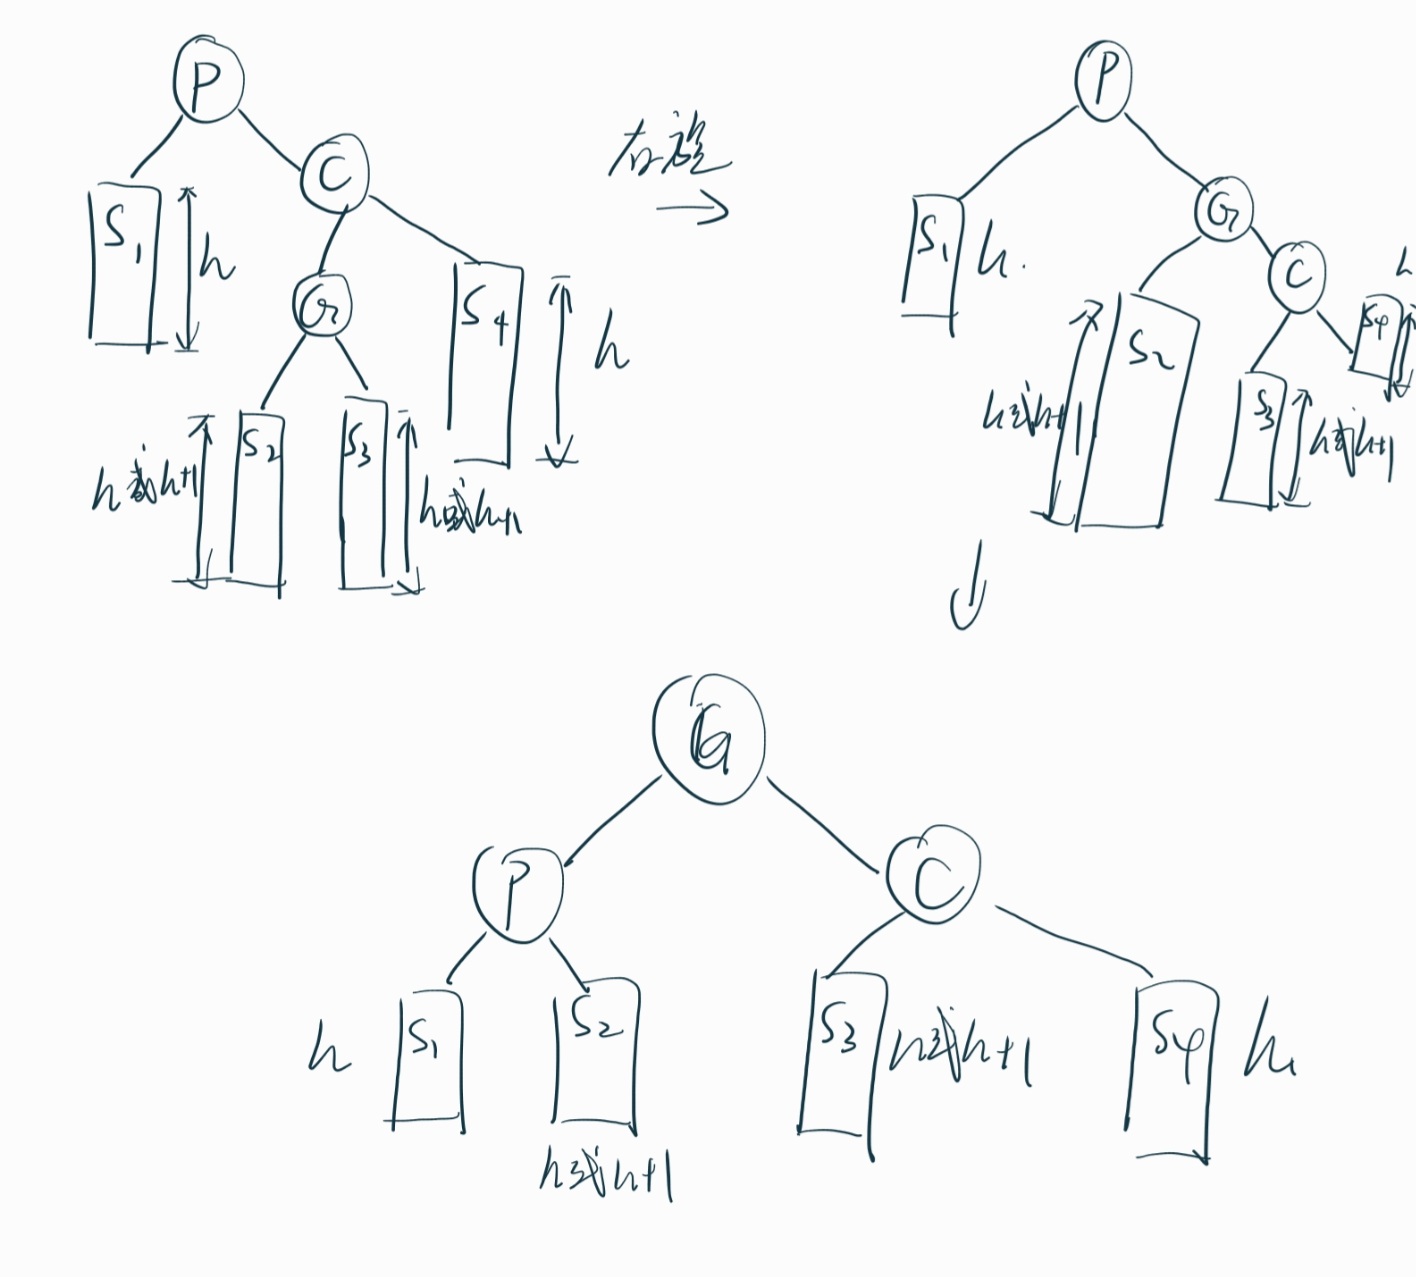 P
C
S1
h
G
S4
h
S2
S3
h或h+1
h或h+1
右旋
P
G
S1
h.
C
h
S4
S2
h或h+1
S3
h或h+1
G
P
C
h
S1
S2
S3
h或h+1
S4
h
h或h+1